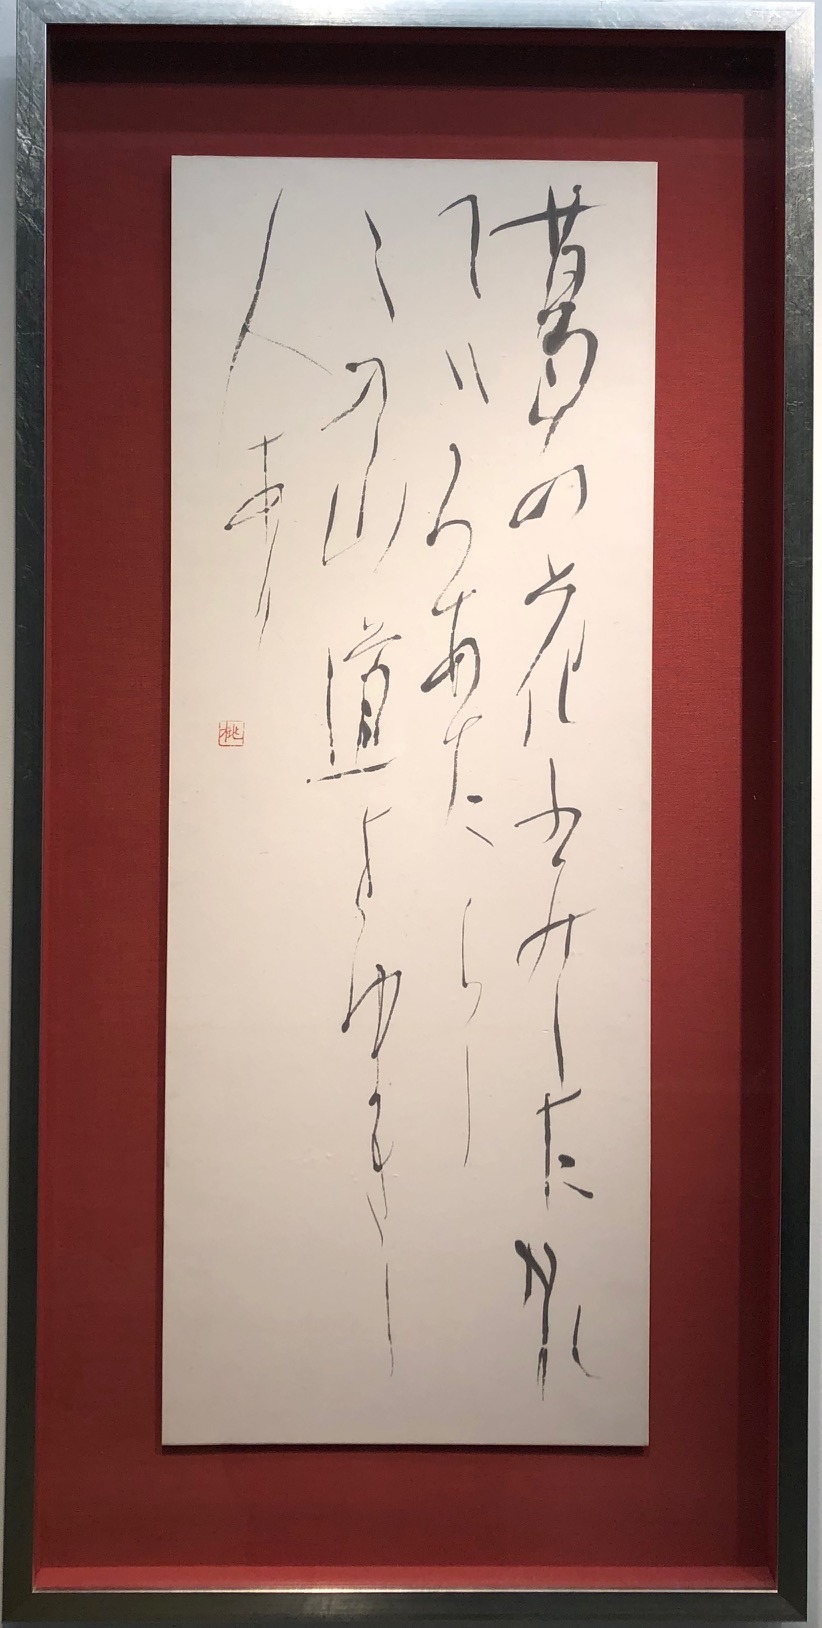 葛の花ふみしだかれ
ていろあたらし
この山道をゆきし
人あり
桃